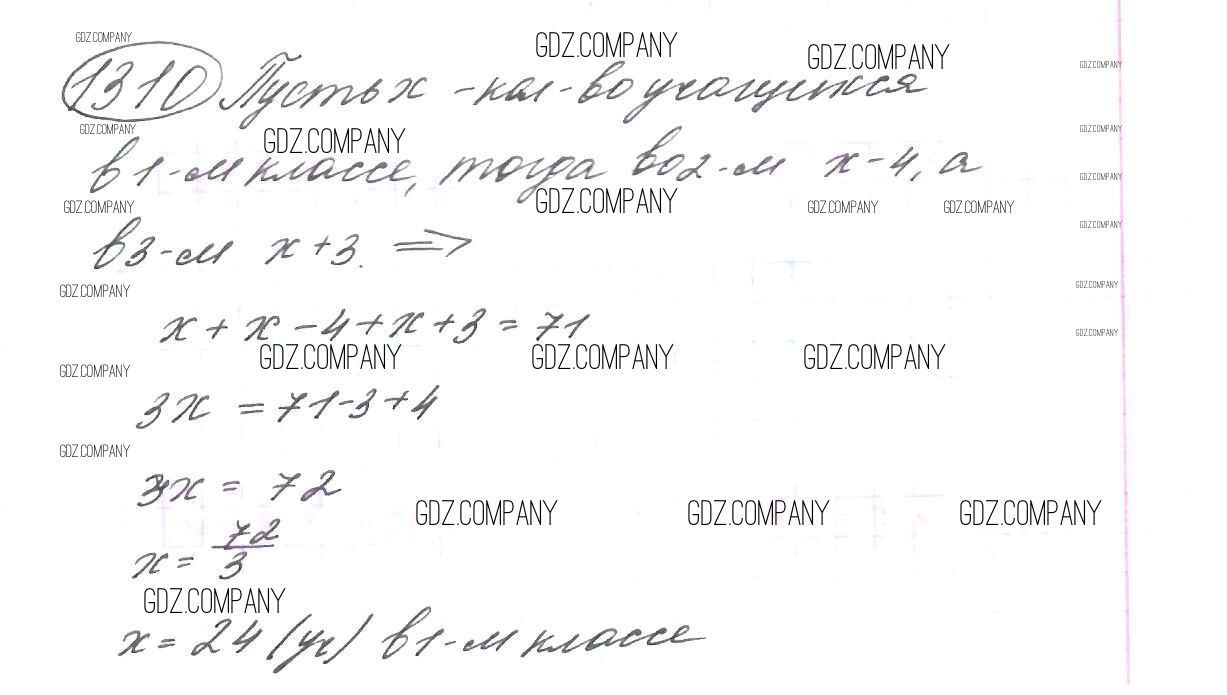 GDZ.COMPANY
GDZ.COMPANY
GDZ.COMPANY
GDZ.COMPANY
1310 Пусть х - кол-во учащихся
GDZ.COMPANY
GDZ.COMPANY
GDZ.COMPANY
в 1-м классе, тогда во 2-м х-4, а
GDZ.COMPANY
GDZ.COMPANY
GDZ.COMPANY
GDZ.COMPANY
GDZ.COMPANY
GDZ.COMPANY
в 3-м х+3. =>
GDZ.COMPANY
GDZ.COMPANY
х + х - 4 + х + 3 = 71
GDZ.COMPANY
GDZ.COMPANY
GDZ.COMPANY
GDZ.COMPANY
GDZ.COMPANY
3х = 71-3+4
GDZ.COMPANY
3х = 72
GDZ.COMPANY
GDZ.COMPANY
GDZ.COMPANY
х = 72/3
GDZ.COMPANY
х = 24 (уч) в 1-м классе